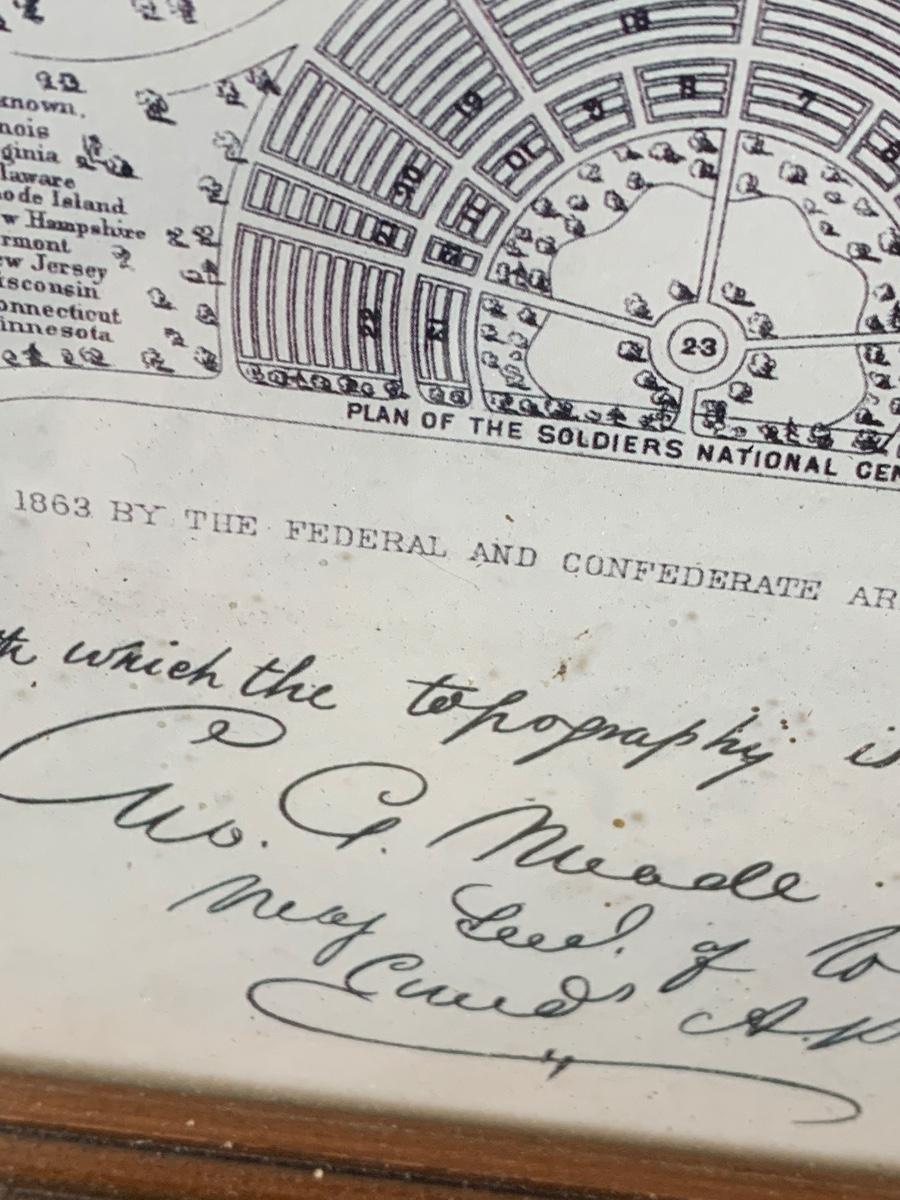 known.
nois
ginia
laware
ode Island
w Hampshire
rmont
ew Jersey
isconsin
onnecticut
innesota
18
19
20
22
10
9
8
7
11
21
23
PLAN OF THE SOLDIERS NATIONAL CEM
1863 BY THE FEDERAL AND CONFEDERATE AR
which the topography is
Geo. G. Meade
Maj Genl. of Vo
Comdg A.P